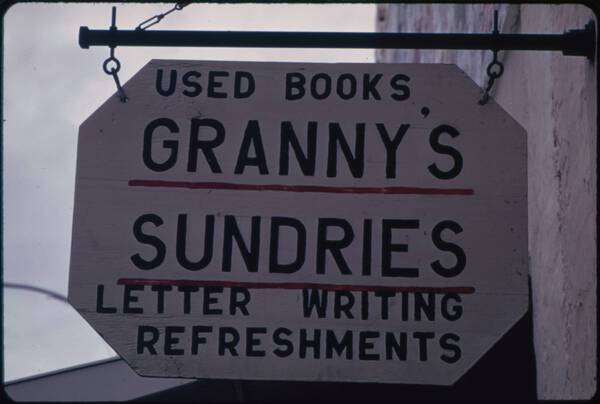 USED BOOKS
GRANNY'S
SUNDRIES
LETTER WRITING
REFRESHMENTS